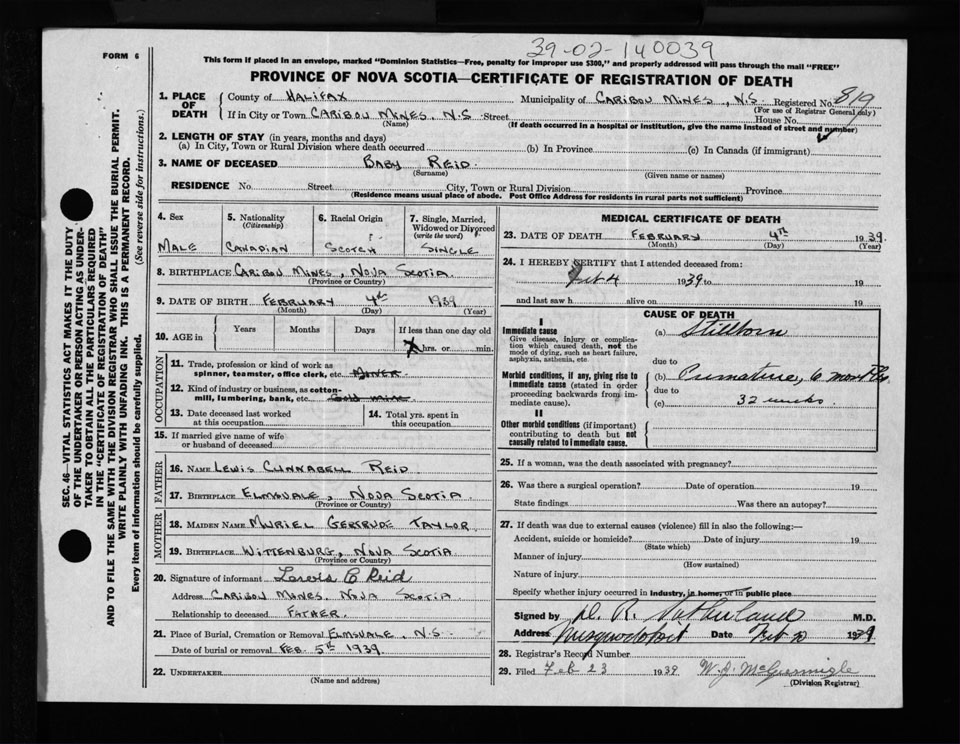 39-02-140039
FORM 6
This form if placed in an envelope, marked "Dominion Statistics—Free, penalty for improper use $300," and properly addressed will pass through the mail "FREE"
PROVINCE OF NOVA SCOTIA—CERTIFICATE OF REGISTRATION OF DEATH
SEC. 46—VITAL STATISTICS ACT MAKES IT THE DUTY
OF THE UNDERTAKER OR PERSON ACTING AS UNDER-
TAKER TO OBTAIN ALL THE PARTICULARS REQUIRED
IN THE "CERTIFICATE OF REGISTRATION OF DEATH"
AND TO FILE THE SAME WITH THE DIVISION REGISTRAR WHO SHALL ISSUE THE BURIAL PERMIT.
WRITE PLAINLY WITH UNFADING INK. THIS IS A PERMANENT RECORD.
Every item of information should be carefully supplied. (See reverse side for instructions.)
1. PLACE OF DEATH
County of HALIFAX Municipality of CARIBOU MINES, N.S Registered No. 819
(For use of Registrar General only)
If in City or Town CARIBOU MINES, N.S Street House No.
(Name) (If death occurred in a hospital or institution, give the name instead of street and number)
2. LENGTH OF STAY (in years, months and days)
(a) In City, Town or Rural Division where death occurred (b) In Province (c) In Canada (if immigrant)
3. NAME OF DECEASED BABY REID
(Surname) (Given name or names)
RESIDENCE No. Street City, Town or Rural Division Province
(Residence means usual place of abode. Post Office Address for residents in rural parts not sufficient)
4. Sex
MALE
5. Nationality
(Citizenship)
CANADIAN
6. Racial Origin
SCOTCH
7. Single, Married,
Widowed or Divorced
(write the word)
SINGLE
8. BIRTHPLACE CARIBOU MINES, NOVA SCOTIA
(Province or Country)
9. DATE OF BIRTH FEBRUARY 4th 1939
(Month) (Day) (Year)
10. AGE in Years Months Days If less than one day old
hrs. or min.
OCCUPATION
11. Trade, profession or kind of work as
spinner, teamster, office clerk, etc. MINER
12. Kind of industry or business, as cotton-
mill, lumbering, bank, etc. Gold mine
13. Date deceased last worked
at this occupation
14. Total yrs. spent in
this occupation
15. If married give name of wife
or husband of deceased
FATHER
16. NAME LEWIS CUNNABELL REID
17. BIRTHPLACE ELMSVALE, NOVA SCOTIA
(Province or Country)
MOTHER
18. MAIDEN NAME MURIEL GERTRUDE TAYLOR
19. BIRTHPLACE WITTENBURG, NOVA SCOTIA
(Province or Country)
20. Signature of informant Lewis C Reid
Address CARIBOU MINES, NOVA SCOTIA
Relationship to deceased FATHER.
21. Place of Burial, Cremation or Removal ELMSVALE, N.S.
Date of burial or removal FEB. 5TH 1939
22. UNDERTAKER
(Name and address)
MEDICAL CERTIFICATE OF DEATH
23. DATE OF DEATH FEBRUARY 4th 1939.
(Month) (Day) (Year)
24. I HEREBY CERTIFY that I attended deceased from:
Feb 4 1939 to 19
and last saw h alive on 19
CAUSE OF DEATH
I
Immediate cause
Give disease, injury or complica-
tion which caused death, not the
mode of dying, such as heart failure,
asphyxia, asthenia, etc
(a) Stillborn
due to
Morbid conditions, if any, giving rise to
immediate cause (stated in order
proceeding backwards from im-
mediate cause).
(b) Premature, 6 months
due to
(c) 32 weeks
II
Other morbid conditions (if important)
contributing to death but not
causally related to immediate cause.
25. If a woman, was the death associated with pregnancy?
26. Was there a surgical operation? Date of operation 19
State findings Was there an autopsy?
27. If death was due to external causes (violence) fill in also the following:—
Accident, suicide or homicide? Date of injury 19
(State which)
Manner of injury
(How sustained)
Nature of injury
Specify whether injury occurred in industry, in home, or in public place
Signed by D. R. Sutherland M.D.
Address Musquodoboit Date Feb 1939
28. Registrar's Record Number
29. Filed Feb 23 1939
(Division Registrar)